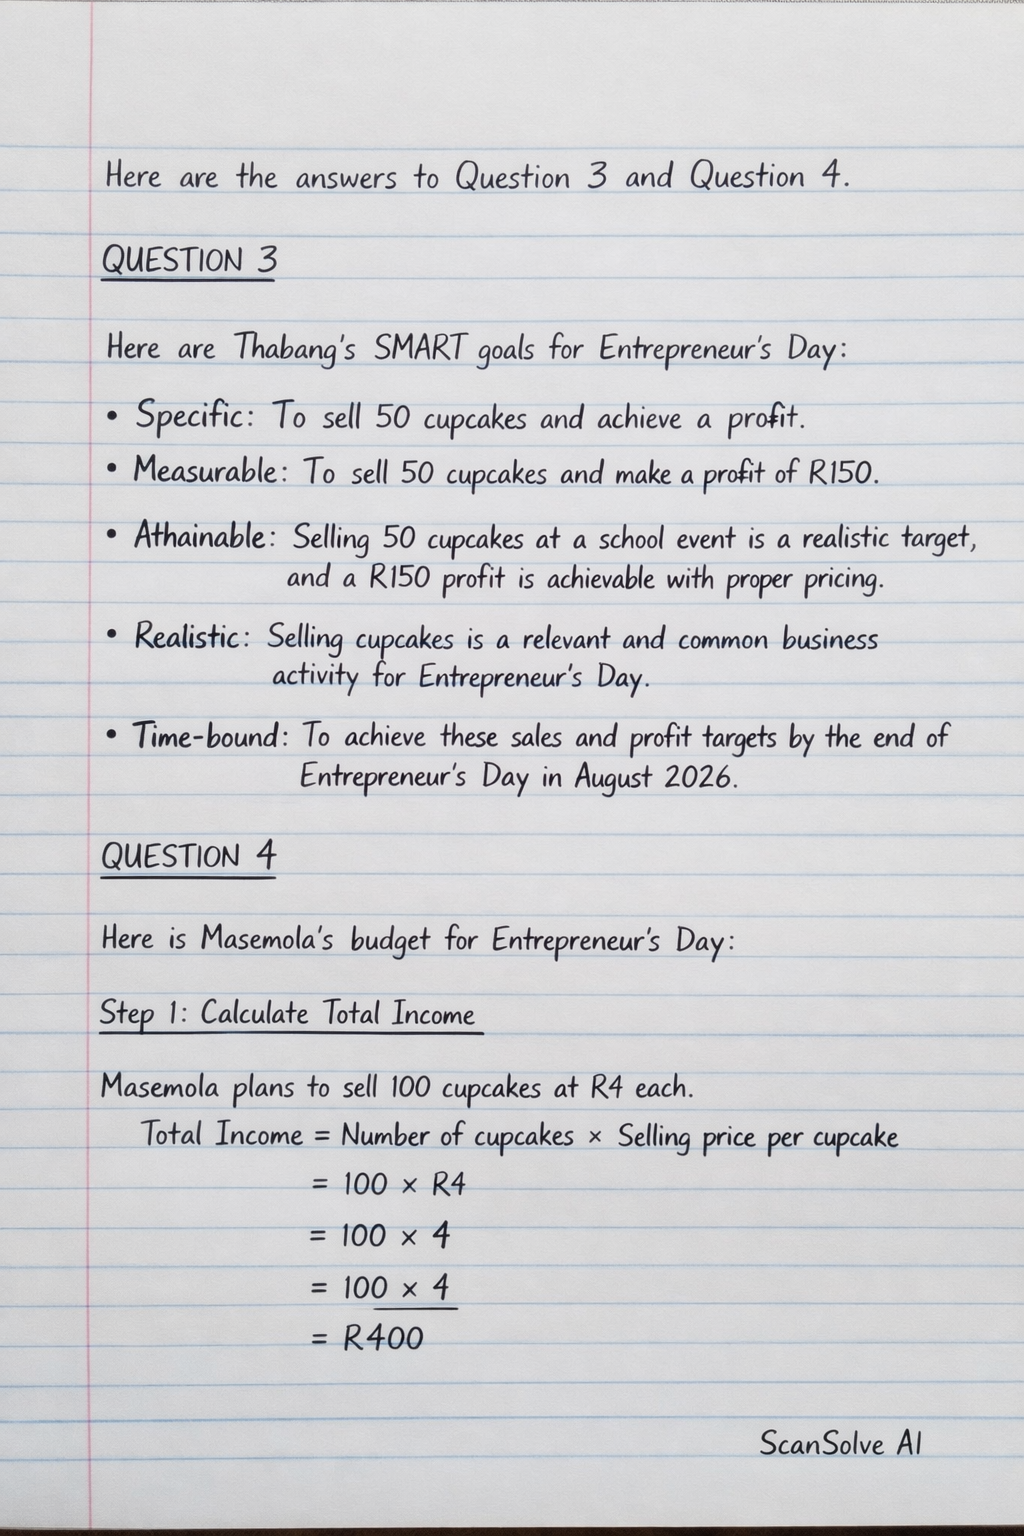 Here are the answers to Question 3 and Question 4.
QUESTION 3
Here are Thabang's SMART goals for Entrepreneur's Day:
• Specific: To sell 50 cupcakes and achieve a profit.
• Measurable: To sell 50 cupcakes and make a profit of R150.
• Athainable: Selling 50 cupcakes at a school event is a realistic target,
and a R150 profit is achievable with proper pricing.
• Realistic: Selling cupcakes is a relevant and common business
activity for Entrepreneur's Day.
• Time-bound: To achieve these sales and profit targets by the end of
Entrepreneur's Day in August 2026.
QUESTION 4
Here is Masemola's budget for Entrepreneur's Day:
Step 1: Calculate Total Income
Masemola plans to sell 100 cupcakes at R4 each.
Total Income = Number of cupcakes × Selling price per cupcake
= 100 × R4
= 100 × 4
= 100 × 4
= R400
ScanSolve AI